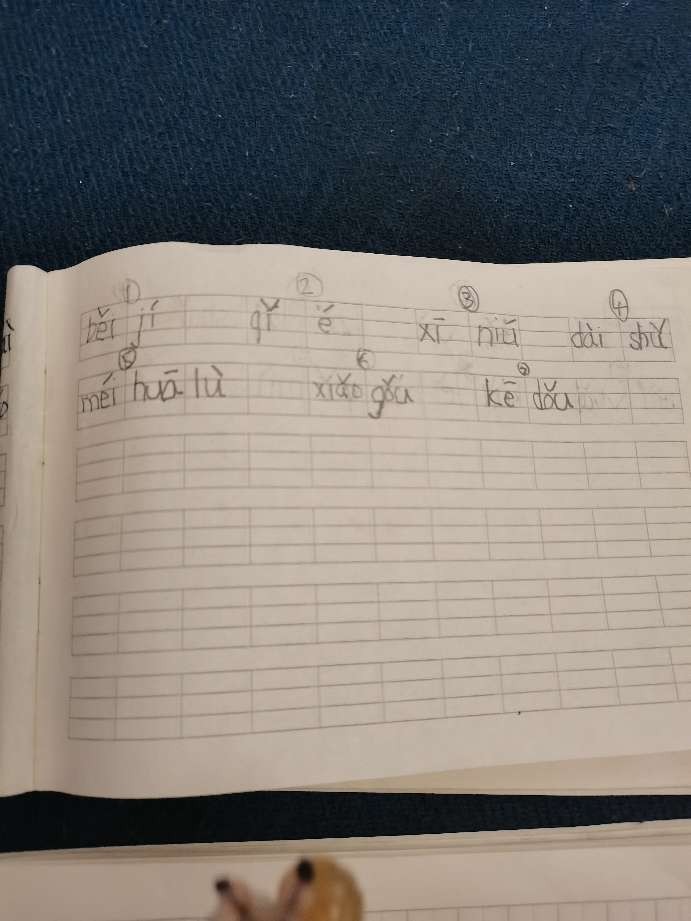 ① ② ③ ④
běi jí qǐ é xī niú dài shǔ
⑤ ⑥ ⑦
méi huā lù xiǎo gǒu kē dǒu